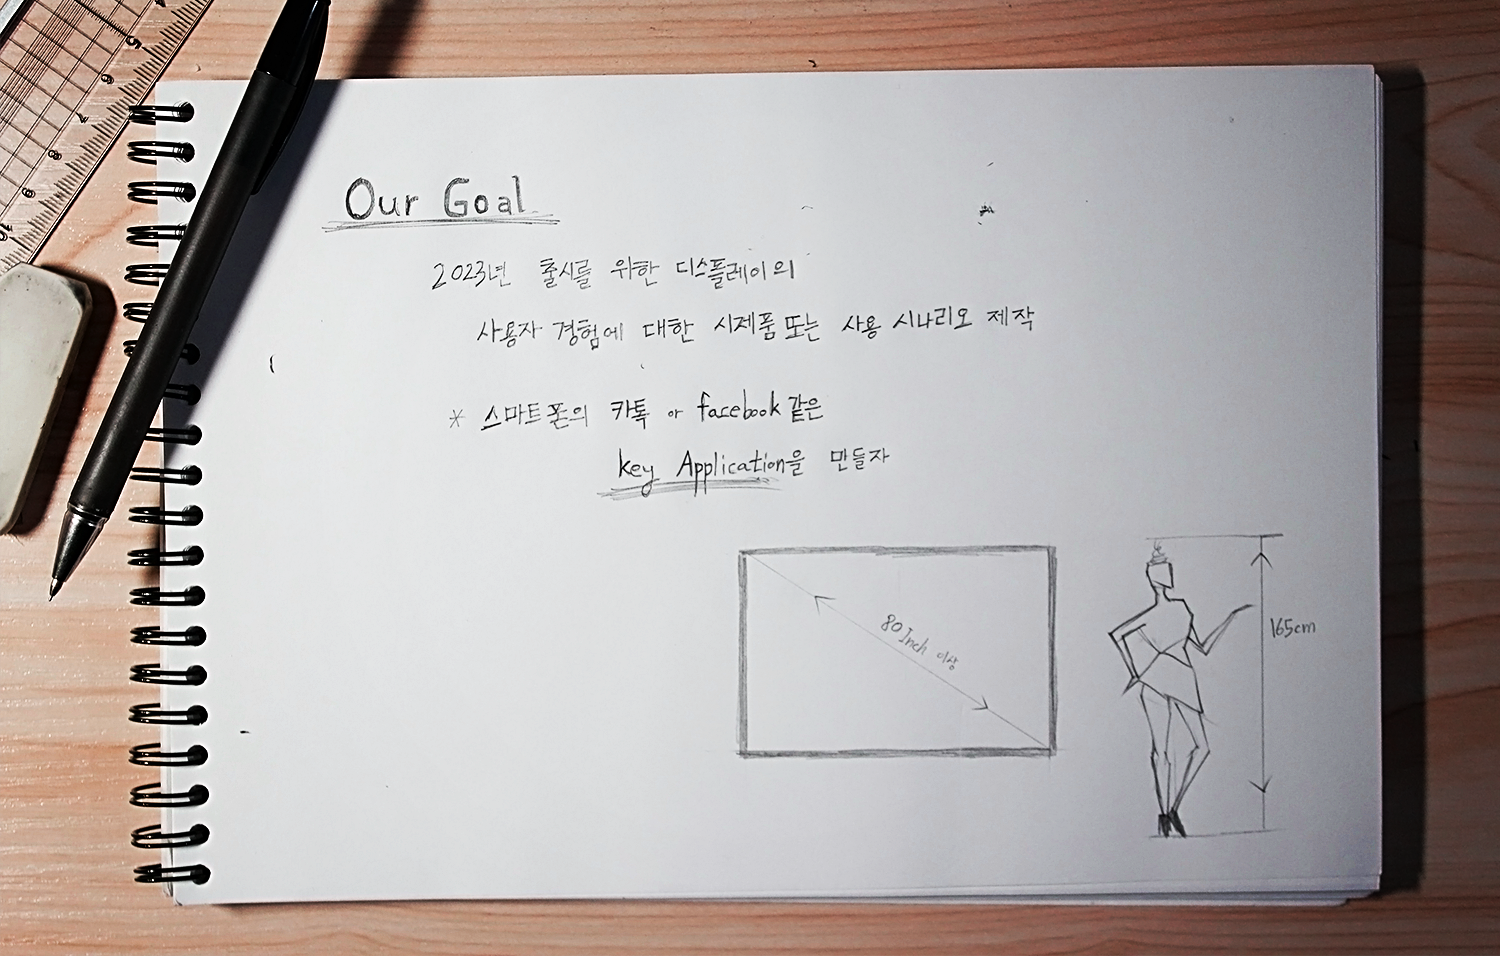 Our Goal
2023년 출시를 위한 디스플레이의
사용자 경험에 대한 시제품 또는 사용 시나리오 제작
* 스마트폰의 카톡 or facebook 같은
key Application을 만들자
80 Inch 이상
165cm
5
6
7
8
9